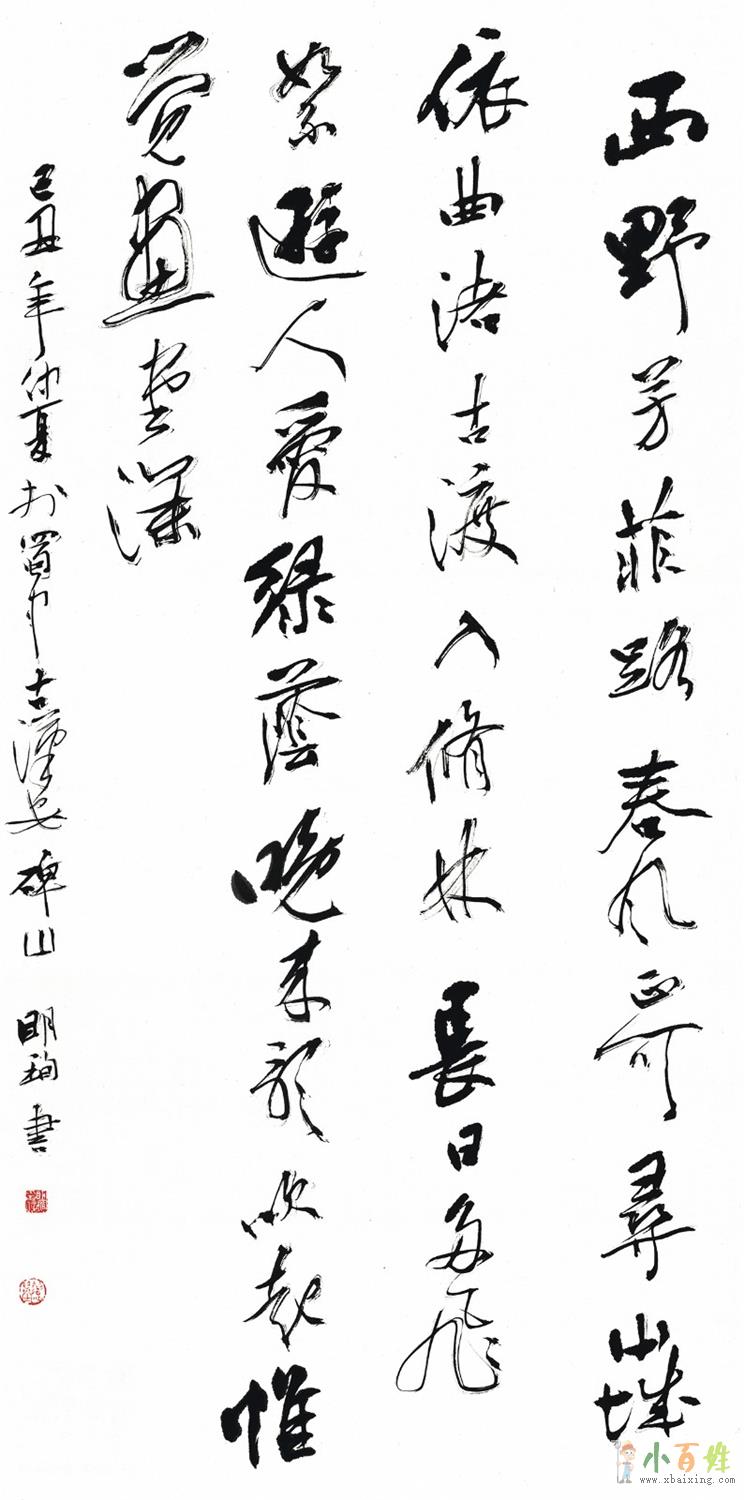 西野芳菲路春风正可寻山城
依曲渚古渡入修林長日多飛
絮遊人愛绿蔭晚来歌吹起惟
觉畫堂深
己丑年仲夏於蜀中古漢安碑山 明珣書
小百姓
www.xbaixing.com